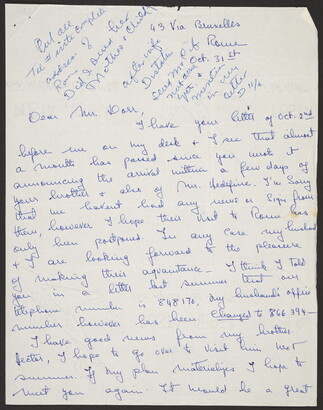 43 Via Bruxelles
Rome
Oct. 31st
But are
address of
Rome
Did I owe her
Mother & Child
after my
our mo. of
letter
Dear Mr. Dorr,
I have your letter of Oct. 2nd
before me on my desk & I see that almost
a month has passed since you wrote it
announcing the arrival within a few days of
your brother & also of Mr. I'm sorry
that we havent had any news or sign from
them, however I hope their visit to Rome has
only been postponed. In any case my husband
& I are looking forward to the pleasure
of making their aquaintance - I think I told
you in a letter last summer that our
telephone number is 848170, my husband's office
number however has been changed to 866394 -
I have good news from my brother
, I hope to go over to visit him next
summer. If my plan materializes I hope to
meet you again. It would be a great